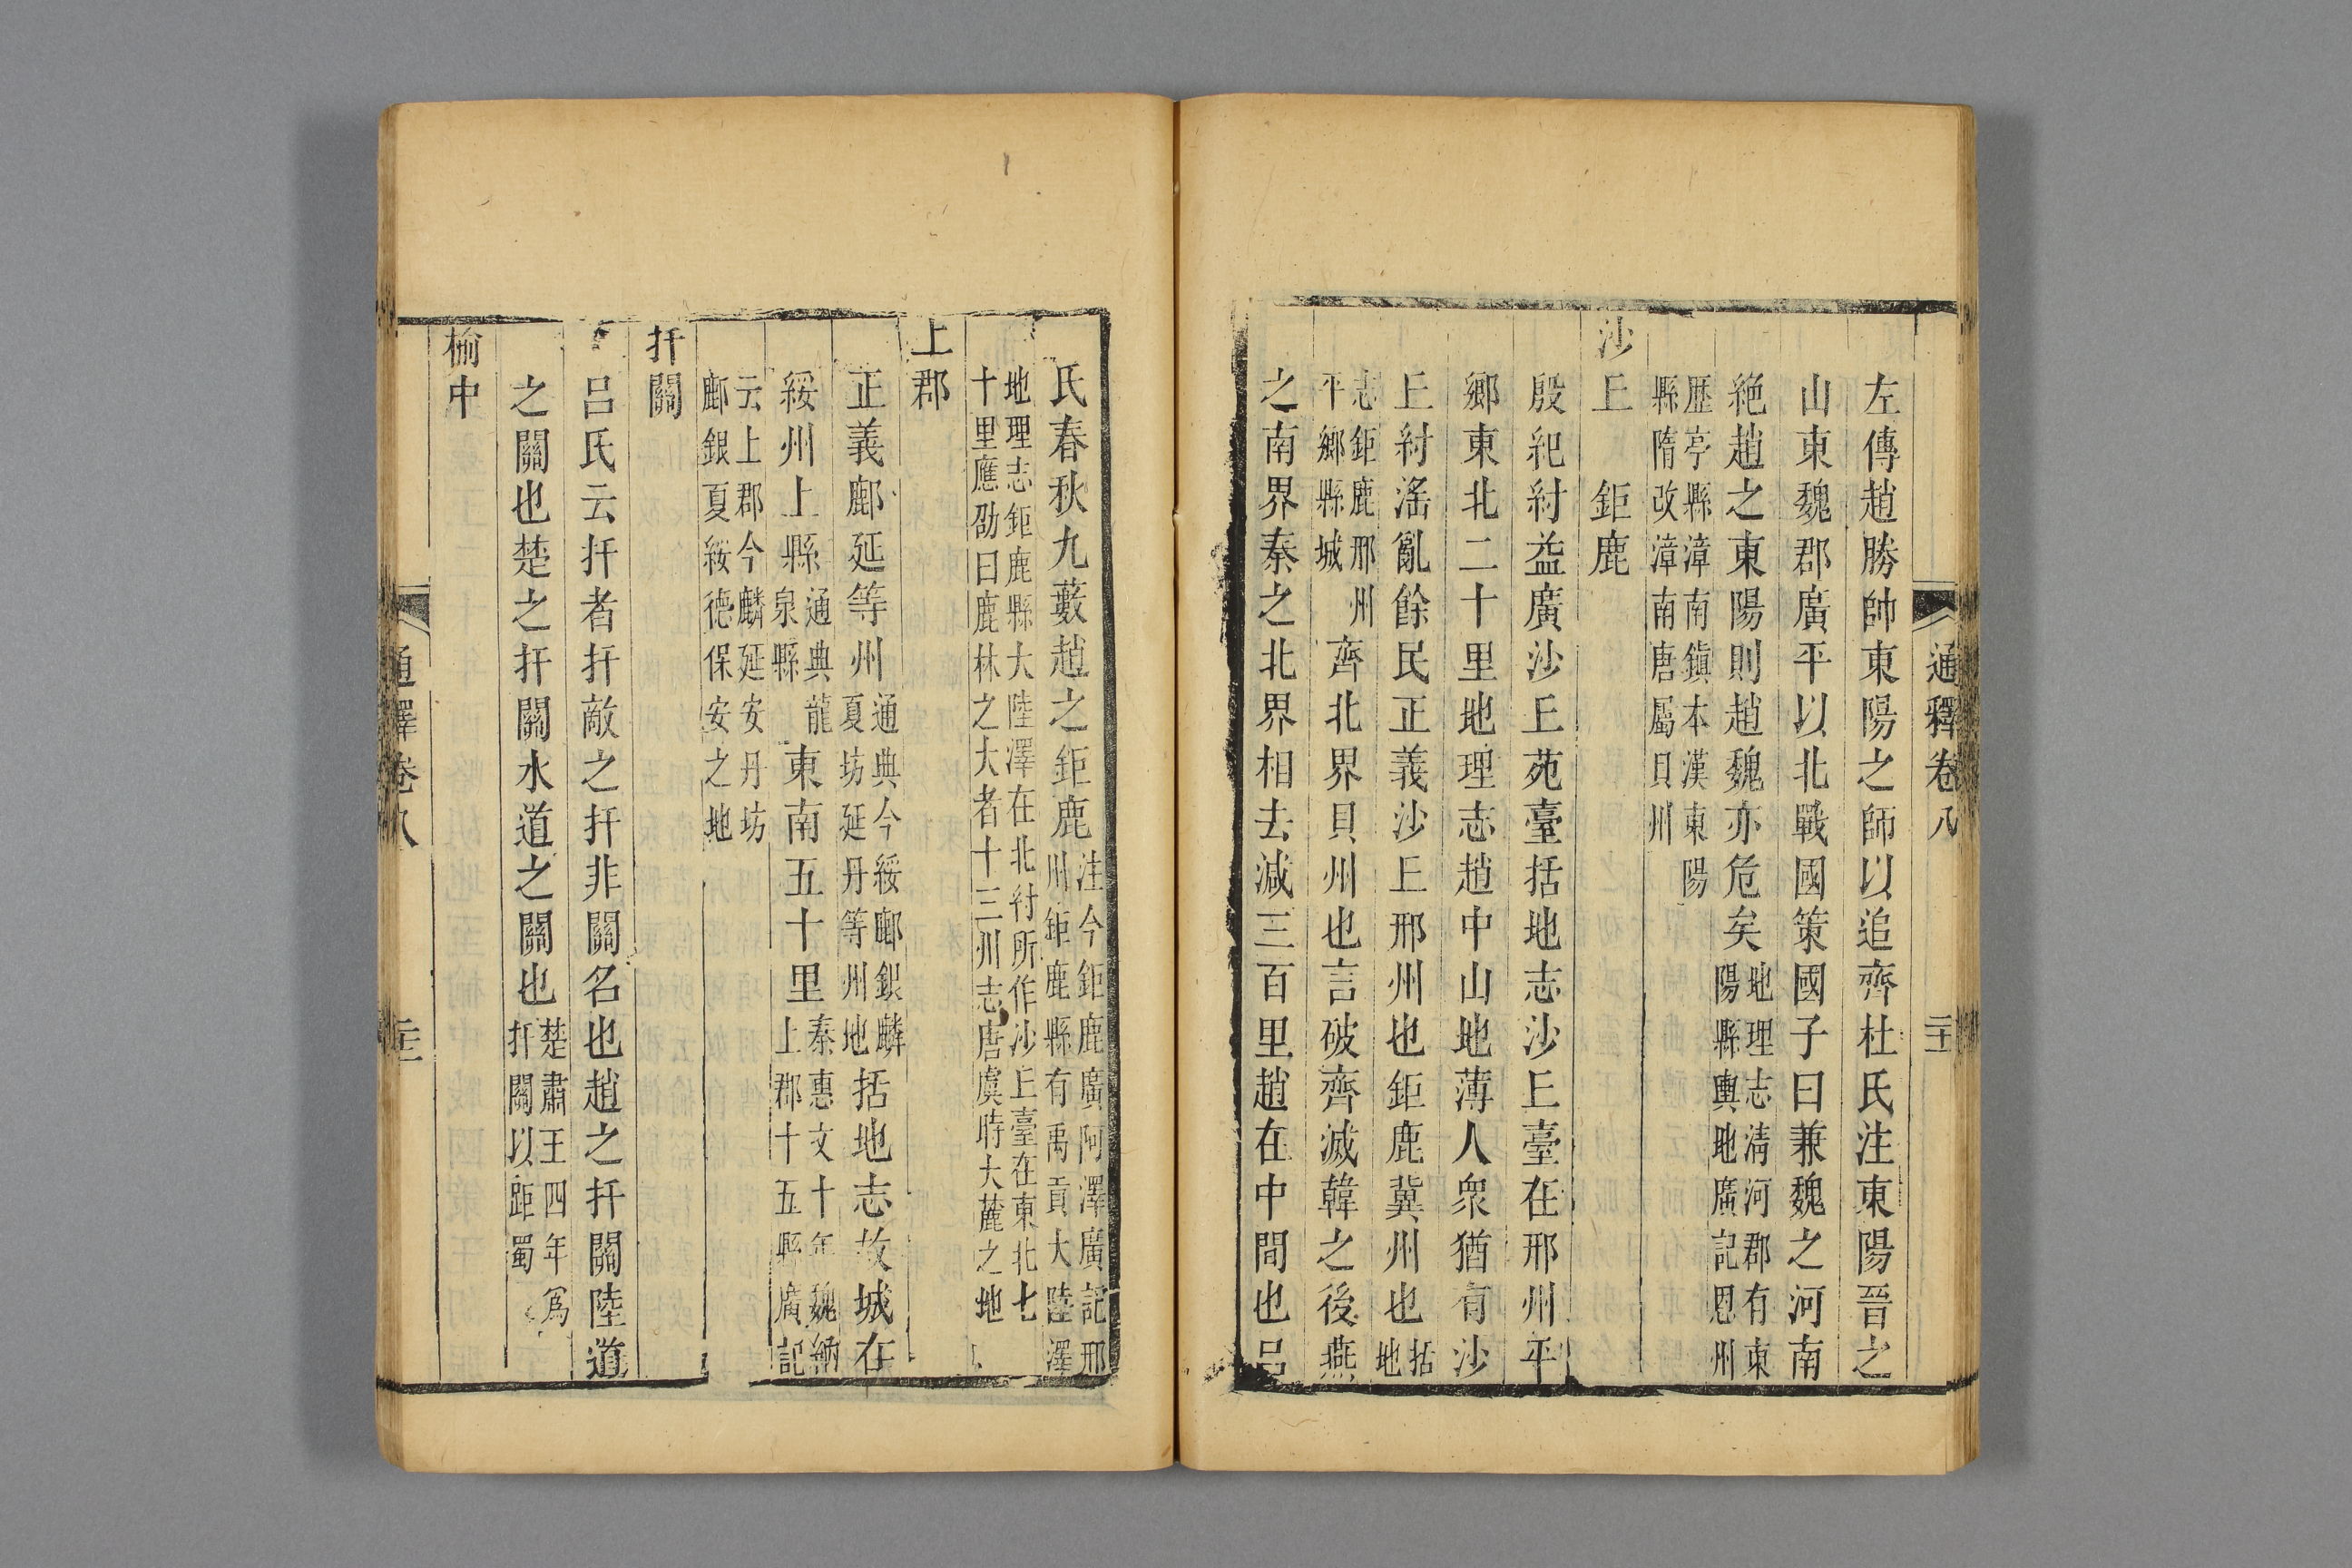 通釋卷八
二十
左傳趙勝帥東陽之師以追齊杜氏注東陽晉之
山東魏郡廣平以北戰國策國子曰兼魏之河南
絶趙之東陽則趙魏亦危矣地理志淸河郡有東
陽縣輿地廣記恩州
歷亭縣漳南鎭本漢東陽
縣隋改漳南唐屬貝州
沙丘　鉅鹿
殷紀紂益廣沙丘苑臺括地志沙丘臺在邢州平
鄉東北二十里地理志趙中山地薄人衆猶有沙
丘紂滛亂餘民正義沙丘邢州也鉅鹿冀州也括
地
志鉅鹿邢州
平鄉縣城
齊北界貝州也言破齊滅韓之後燕
之南界秦之北界相去減三百里趙在中間也呂
氏春秋九藪趙之鉅鹿注今鉅鹿廣阿澤廣記邢
州鉅鹿縣有禹貢大陸澤
地理志鉅鹿縣大陸澤在北紂所作沙丘臺在東北七
十里應劭曰鹿林之大者十三州志唐虞時大麓之地
上郡
正義鄜延等州通典今綏鄜銀麟
夏坊延丹等州地
括地志故城在
綏州上縣通典龍
泉縣
東南五十里秦惠文十年魏納
上郡十五縣廣記
云上郡今麟延安丹坊
鄜銀夏綏德保安之地
扞關
呂氏云扞者扞敵之扞非關名也趙之扞關陸道
之關也楚之扞關水道之關也楚肅王四年爲
扞關以距蜀
榆中
通釋卷八